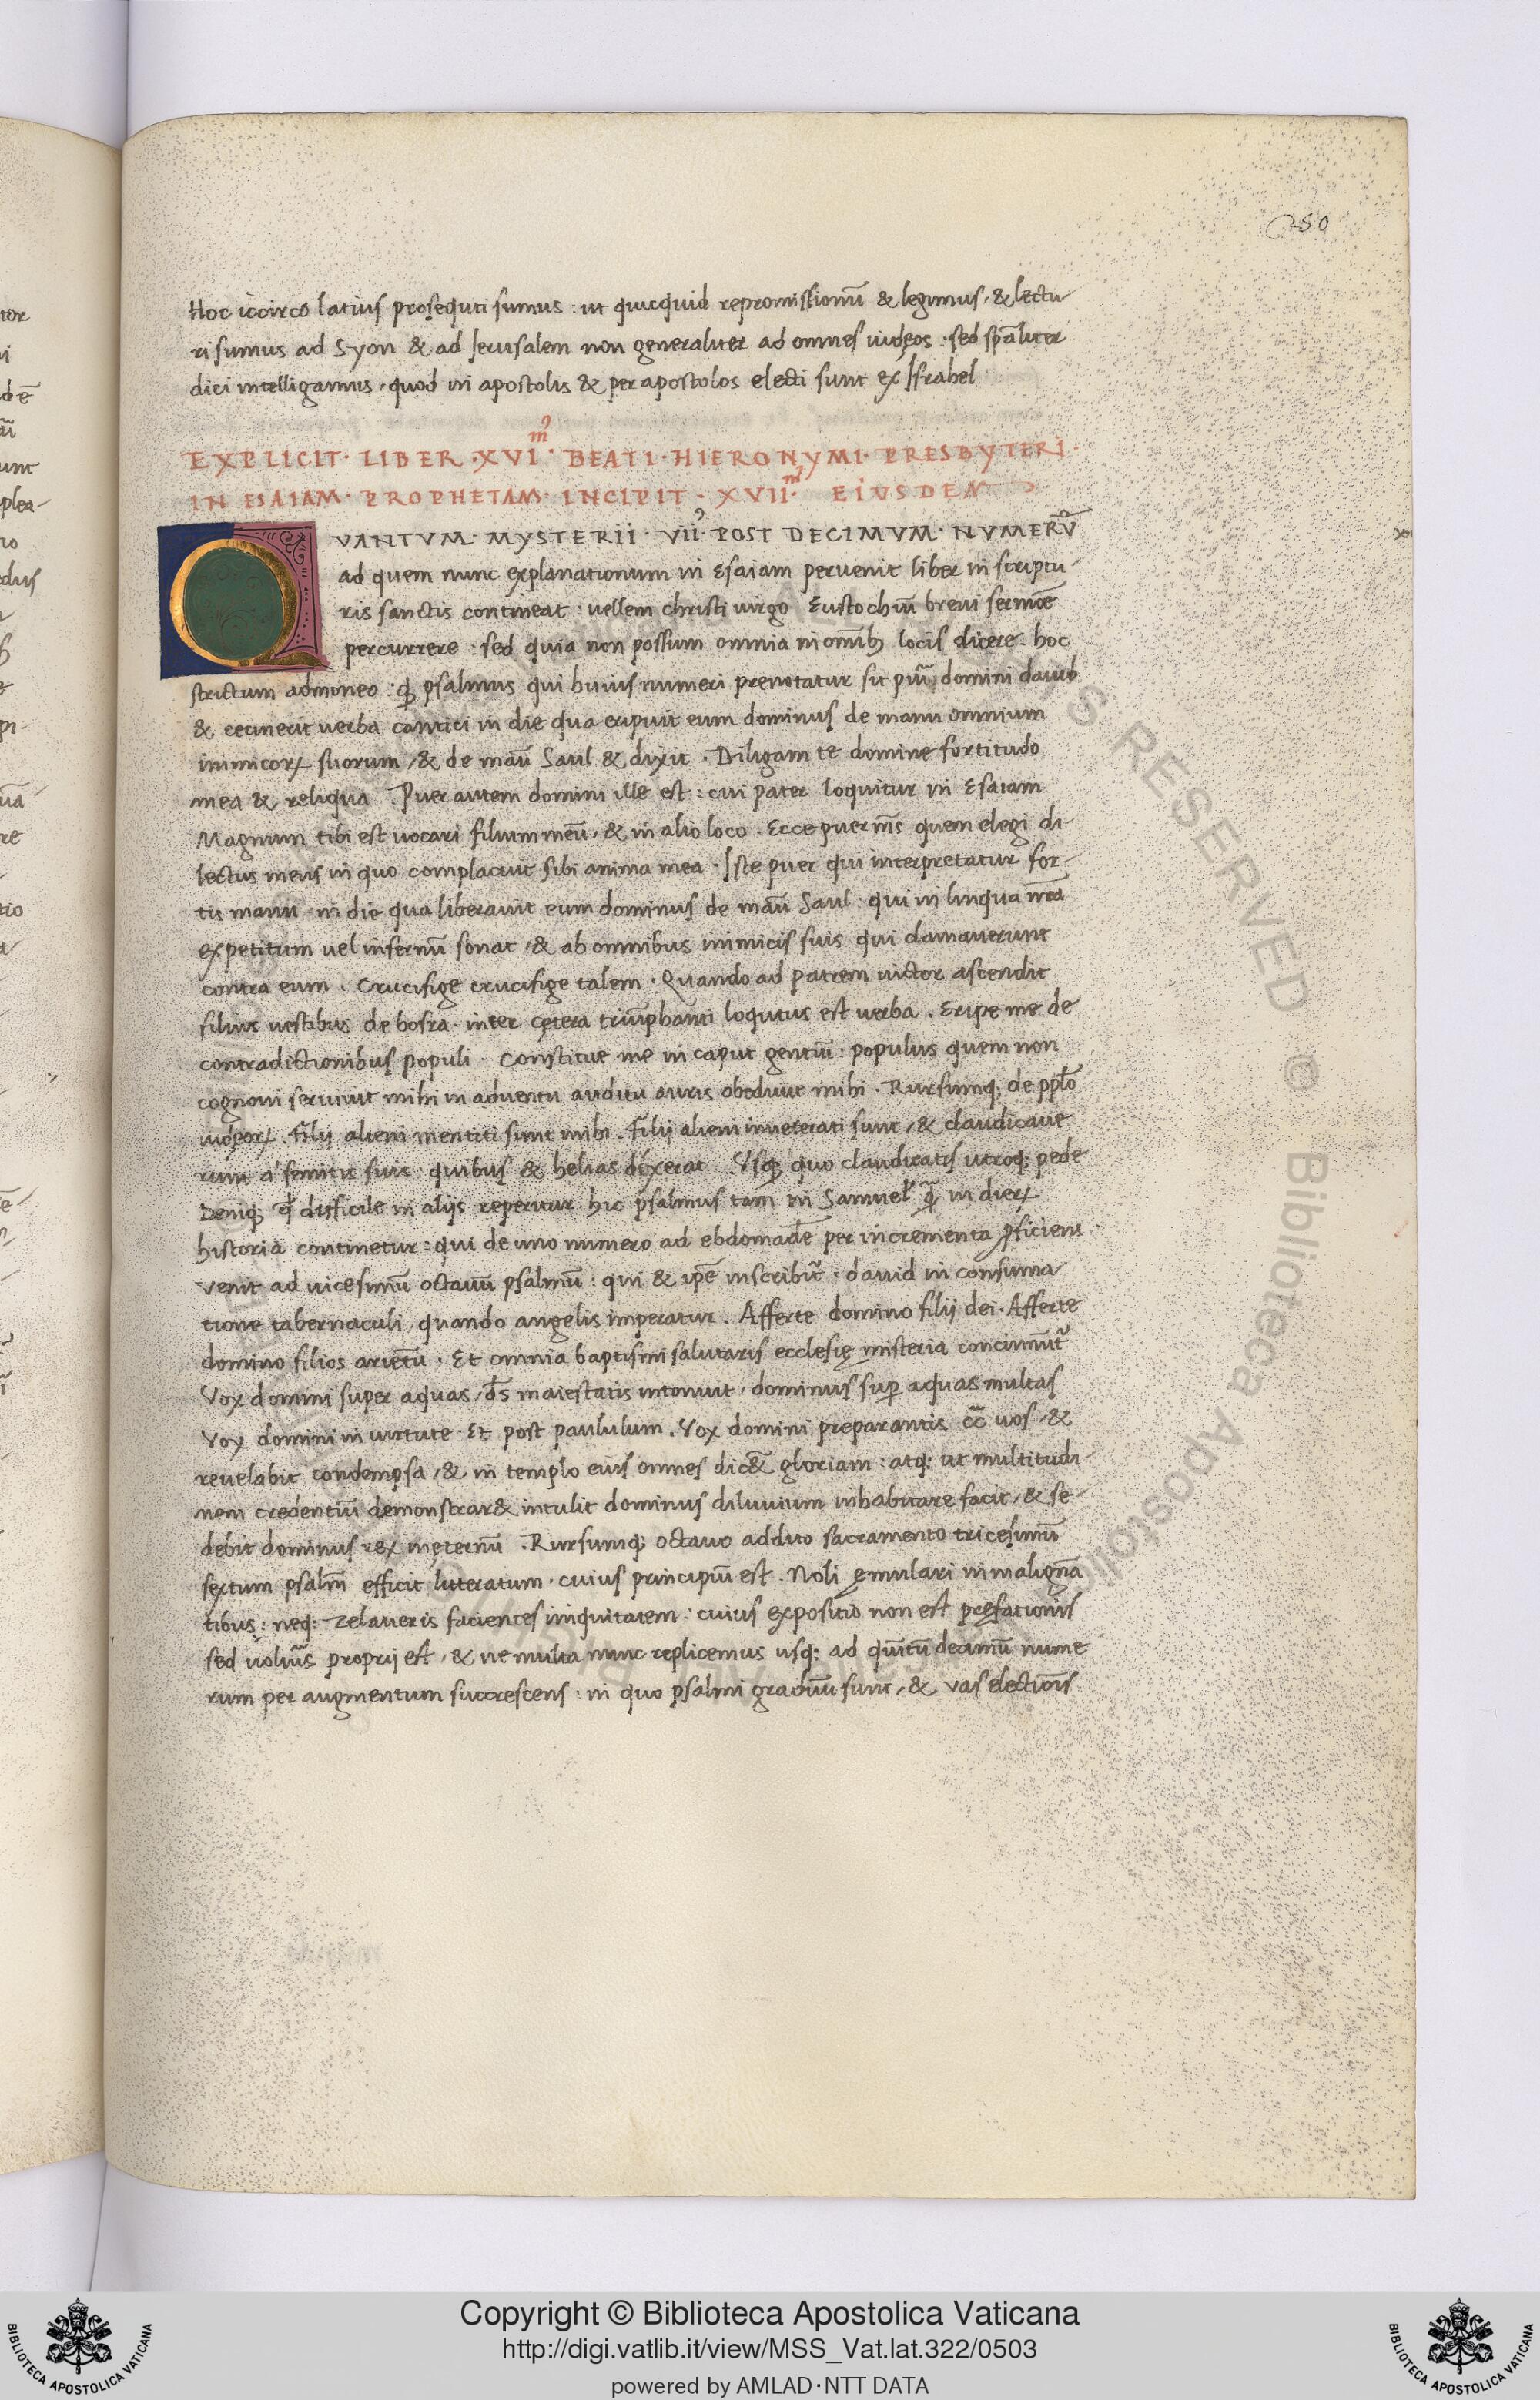 250
Hoc iccirco latius prosequti sumus : ut quicquid repromissionū & legimus, & lectu-
ri sumus ad Syon & ad Jerusalem non generaliter ad omnes iudęos . sed spāliter
dici intelligamus, quod in apostolis & per apostolos electi sunt ex Israhel
EXPLICIT · LIBER · XVI᷒ᵐ · BEATI · HIERONYMI · PRESBYTERI ·
IN ESAIAM · PROPHETAM · INCIPIT · XVIIᵐ · EIUSDEM
QVANTVM · MYSTERII · VII᷒ · POST DECIMVM · NVMERŪ
ad quem nunc explanationum in Esaiam peruenit liber in scriptu-
ris sanctis contineat : uellem christi uirgo Eustochiū breui sermōe
percurrere : sed quia non possum omnia in omīb; locis dicere . hoc
strictum admoneo : qꝫ psalmus qui huius numeri prenotatur sit pūi domini dauid
& cecinerit uerba cantici in die qua eripuit eum dominus de manu omnium
inimicoꝝ suorum, & de manū Saul & dixit . Diligam te domine fortitudo
mea & reliqua . Puer autem domini ille est : cui pater loquitur in Esaiam
Magnum tibi est uocari filium meū, & in alio loco . Ecce puer m̄s quem elegi di-
lectus meus in quo complacuit sibi anima mea . Iste puer qui interpretatur for-
tis manu in die qua liberauit eum dominus de manū Saul : qui in lingua nr̄a
expetitum uel infernū sonat, & ab omnibus inimicis suis qui clamauerunt
contra eum . Crucifige crucifige talem . Quando ad patrem uictor ascendit
filius uestibus de bosra . inter cętera triūphanti loqutus est uerba . Eripe me de
contradictionibus populi . Constitue me in caput gentiū : populus quem non
cognoui seruiuit mihi in aduentu auditu auris obediuit mihi . Rursumq; de pp̄lo
iudęoꝝ . Filij alieni mentiti sunt mihi . Filij alieni inueterati sunt, & claudicaue
runt a' semitis suis quibus & helias díxerat . Vsqꝫ quo claudicatis utroq; pede
Deniq; qd̄ difficile in alijs reperitur hic psalmus tam in Samuel' q̄ in dieꝝ
historia continetur : qui de uno numero ad ebdomadē per incrementa ꝓficiens
venit ad uicesimū octauū psalmū : qui & ip̄e inscribit̄ . dauid in consuma-
tione tabernaculi, quando angelis imperatur . Afferte domino filij dei . Afferte
domino filios arietū . Et omnia baptismi salutaris ecclesię misteria concinunt̄
Vox domini super aquas, d̄s maiestatis intonuit, dominus suꝑ aquas multas
Vox domini in uirtute . Et post paululum . Vox domini preparantis cc̄ uos, &
reuelabit condempsa, & in templo eius omnes dic& gloriam : atq; ut multitudi-
nem credentiū demonstrar& intulit dominus diluuium inhabitare facit, & se-
debit dominus rex inęternū . Rursumq; octauo addito sacramento tricesimū
sextum psalm̄ efficit luteratum . cuius principiū est . Noli ęmulari in malignā
tibus : neq; zelaueris facientes iniquitatem : cuius expositio non est prefationis
sed uolūis proprij est, & ne multa nunc replicemus usq; ad quītū decimū nume
rum per augmentum succrescens : in quo psalmi graduū sunt, & vas electiōis
Copyright © Biblioteca Apostolica Vaticana
http://digi.vatlib.it/view/MSS_Vat.lat.322/0503
powered by AMLAD·NTT DATA